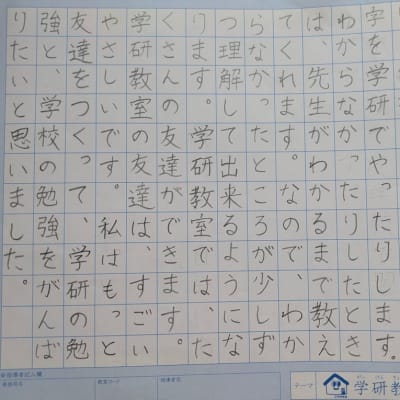 字を学研でやったりします。
わからなかったりしたとき
は、先生がわかるまで教え
てくれます。なので、わか
らなかったところが少しず
つ理解して出来るようにな
ります。学研教室では、た
くさんの友達ができます。
学研教室の友達は、すごい
やさしいです。私はもっと
友達をつくって、学研の勉
強と、学校の勉強をがんば
りたいと思いました。
指導者記入欄
事務局名
教室コード
指導者名
テーマ
学研教